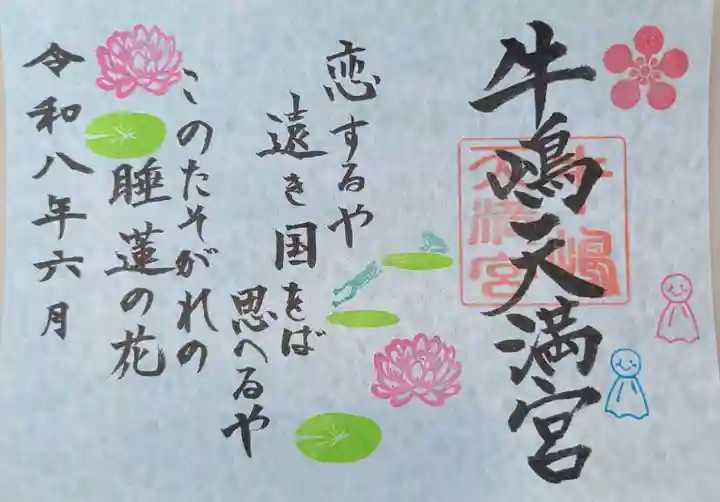 牛嶋天満宮
恋するや
遠き国をば
思へるや
このたそがれの
睡蓮の花
令和八年六月